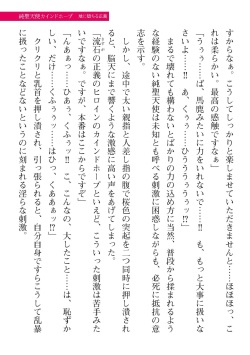 純聖天使カインドホープ 地に堕ちる正義
すからなぁ。こうしてしっかりと楽しませていただきませんと……ほほほっ、こ
れは柔らかい、最高の感触ですなぁ」
「うぅぅ……ば、馬鹿みたいに力をいれないで……‼ も、もっと大事に扱いな
さいよ……‼ あぐぅぅぅ……ひううぅぅぅぅッ⁉」
まるで壊れても構わないとばかりの力の込め方に当然、普段から揉まれるよう
な経験のない純聖天使は未知とも呼べる刺激に困惑しながらも、必死に抵抗の意
志を示す。
しかし、途中で太い親指と人差し指の腹で桜色の突起を二つ同時に押し潰され
ると、脳天にまで響くような激感に高い声をあげてしまった。
「流石の正義のヒロインのカインドホープといえど、こういった刺激は苦手みた
いですなぁ ですが、本番はここからですぞ」
「んあぁぁ……ひあっ、くふぅッ⁉ こ、こんなの 大したこと……は、恥ずか
しい、だけ……くふぅぅッ……はひっ、くああぁッ⁉」
クリクリと乳首を押し潰され、引っ張られると、自分自身ですらこうして乱暴
に扱ったことなどないというのに刻まれる淫らな刺激。